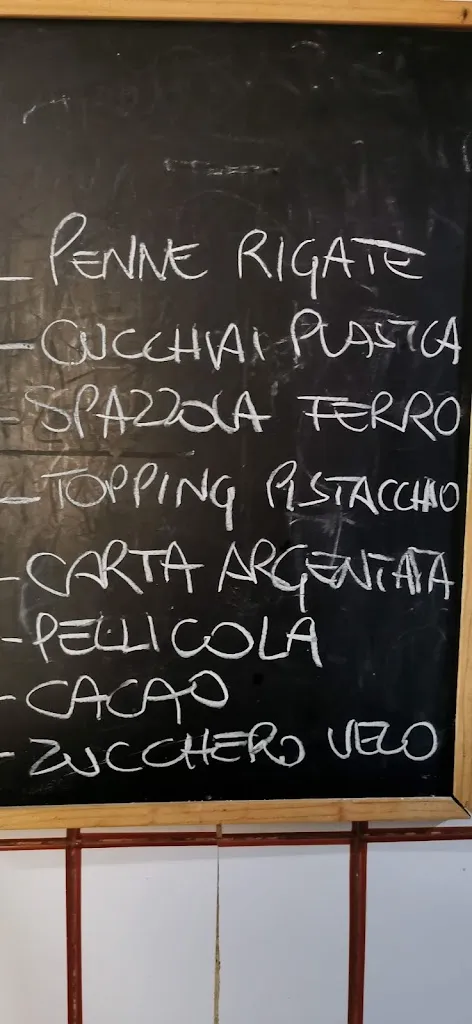 - PENNE RIGATE
- CUCCHIAI PLASTICA
- SPAZZOLA FERRO
- TOPPING PISTACCHIO
- CARTA ARGENTATA
- PELLICOLA
- CACAO
- ZUCCHERO VELO